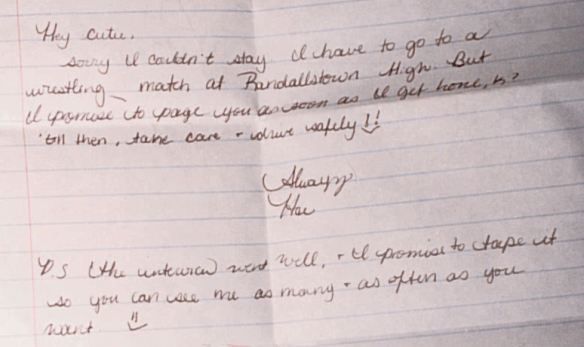 Hey Cutie.
sorry I couldn't stay I have to go to a
wrestling match at Randallstown High. But
I promise to page you as soon as I get home, k?
'till then, take care + drive safely!!
Always
Hae
P.S (the interview) went well, + I promise to tape it
so you can see me as many + as often as you
want